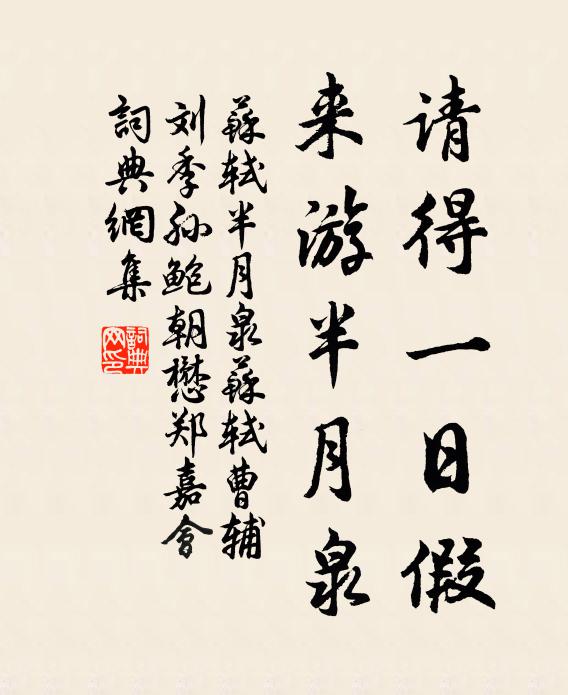 请得一日假
来游半月泉
蘇轼半月泉蘇轼曹辅
刘季孙鲍朝懋郑嘉會
詞典網集
詞典
网印